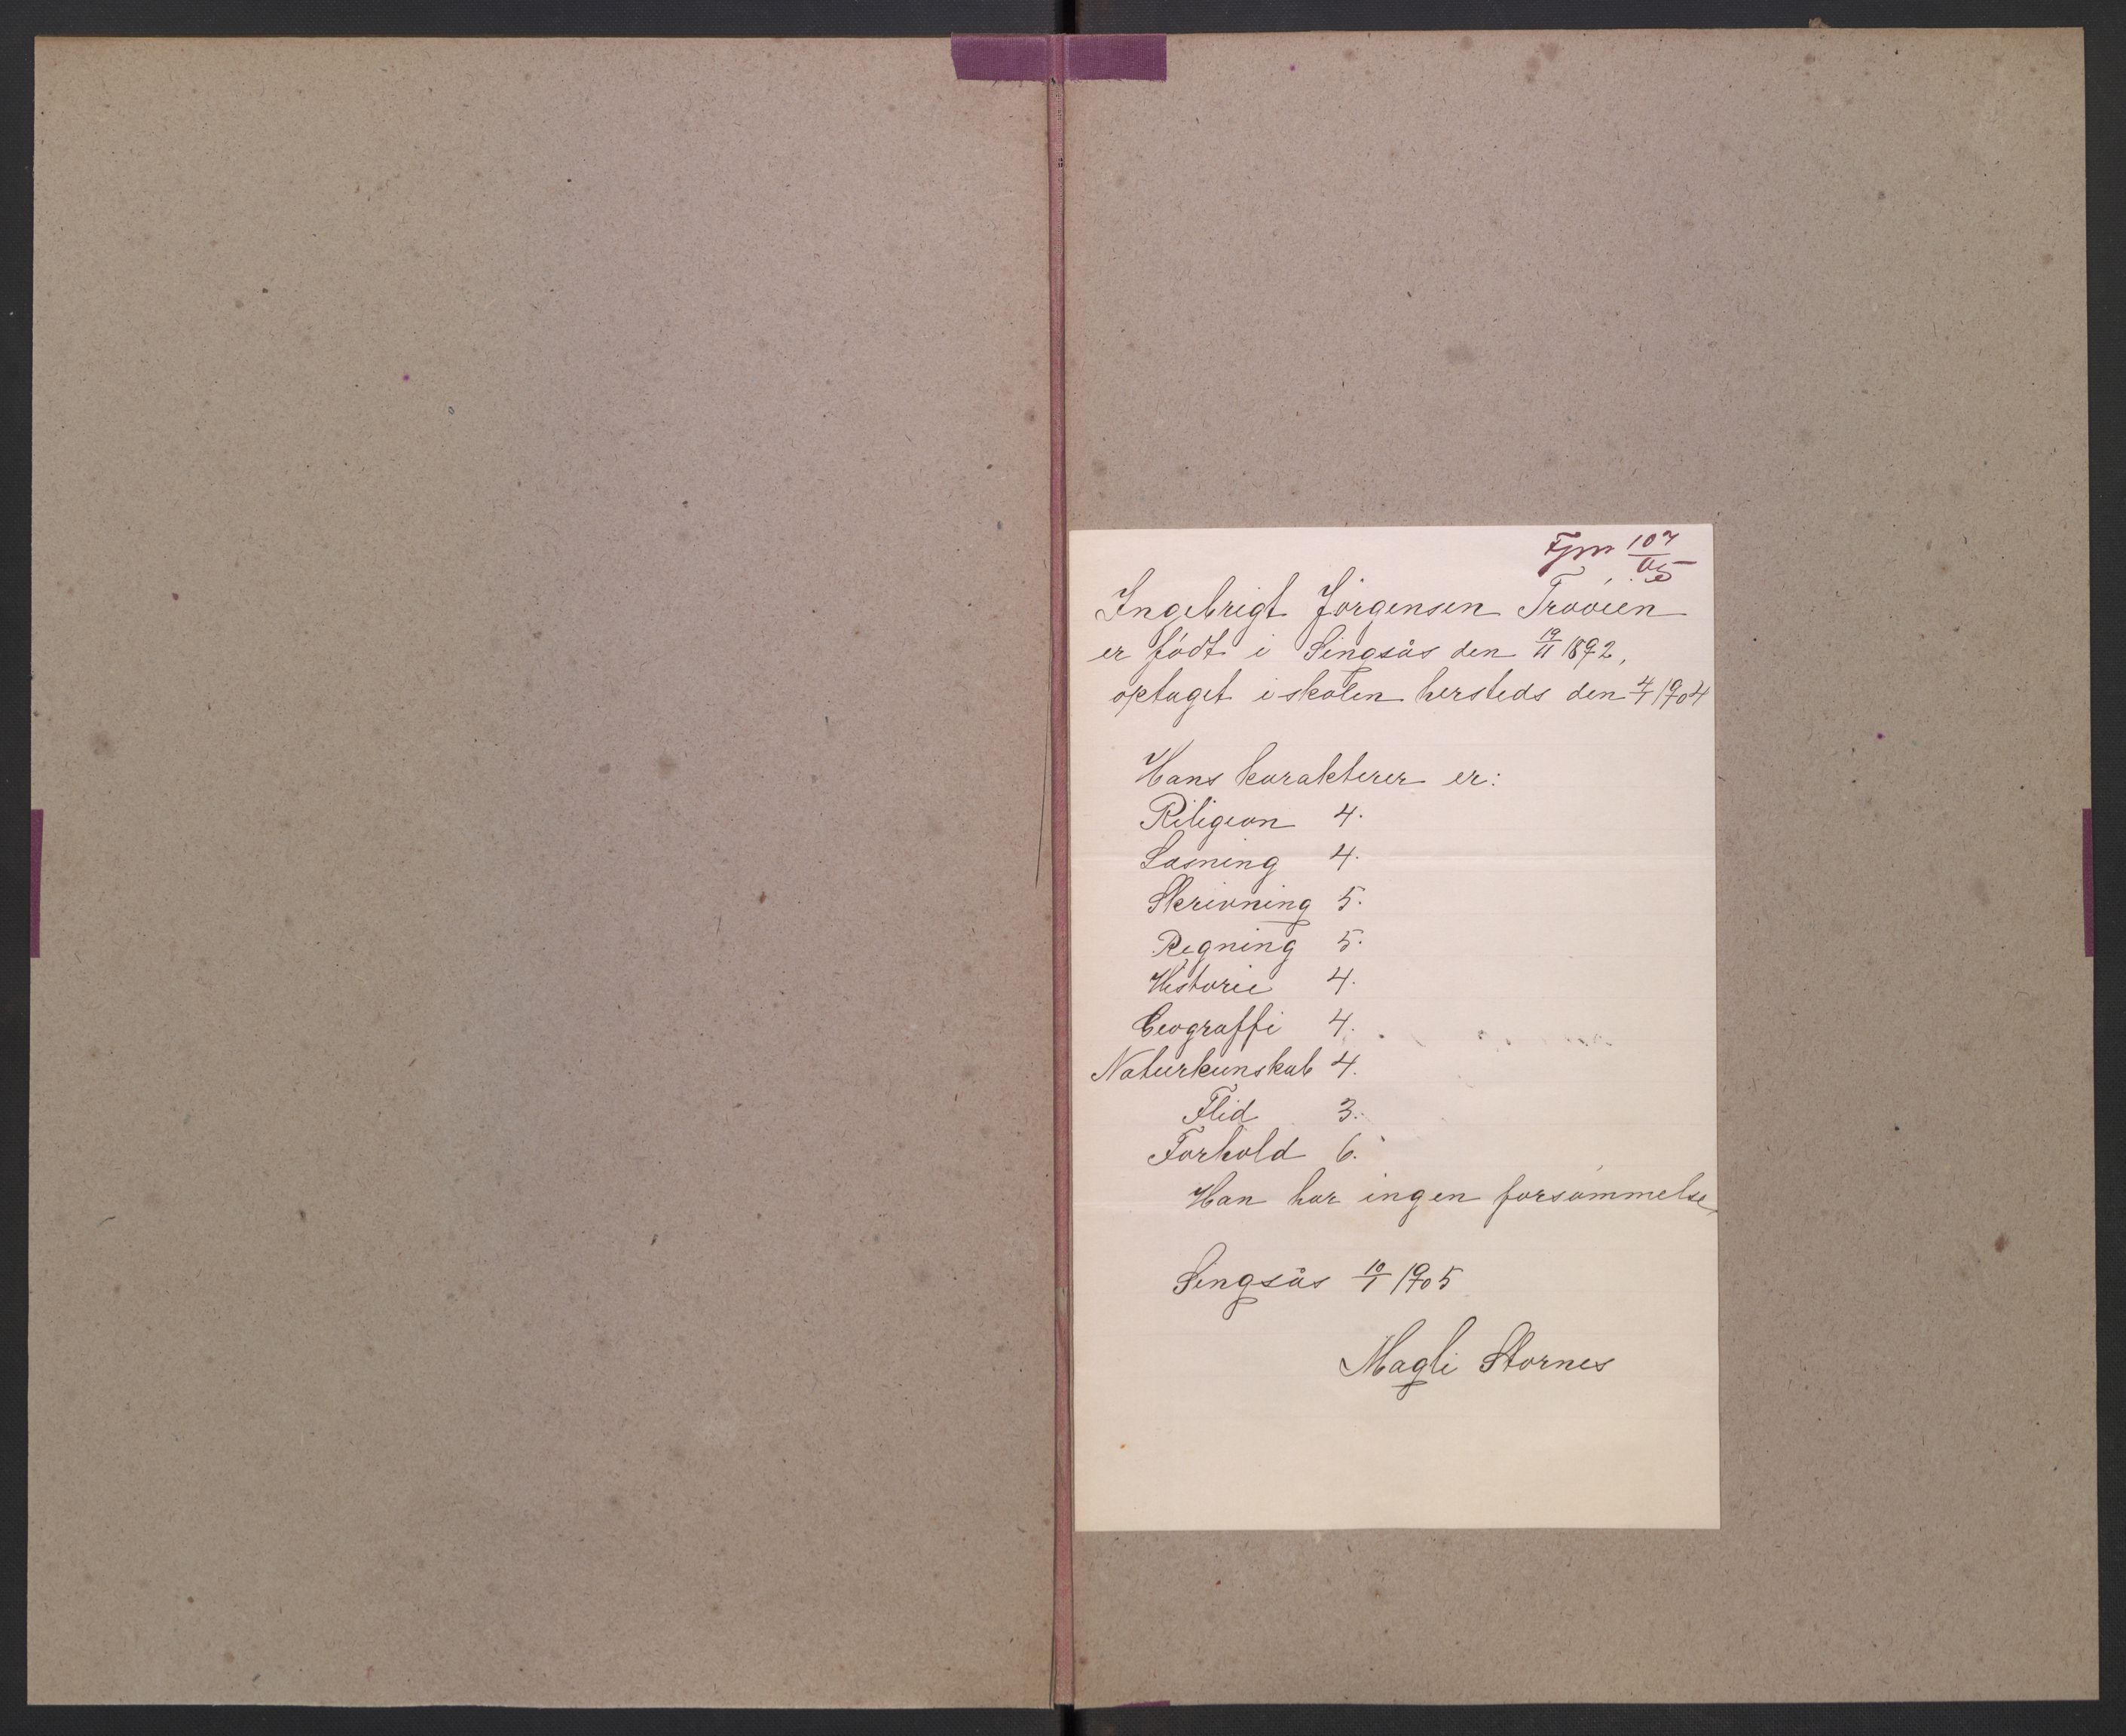 Fjm 107/05
Ingebrigt Jörgensen Trøøien
er født i Singsås den 19/11 1892,
optaget i skolen hersteds den 4/1 1904
Hans karakterer er:
Riligion 4.
Læsning 4.
Skrivning 5.
Regning 5.
Historie 4.
Geograffi 4.
Naturkunskab 4.
Flid 3.
Forhold 6.
Han har ingen forsømmelse,
Singsås 10/1 1905
Magli Stornes